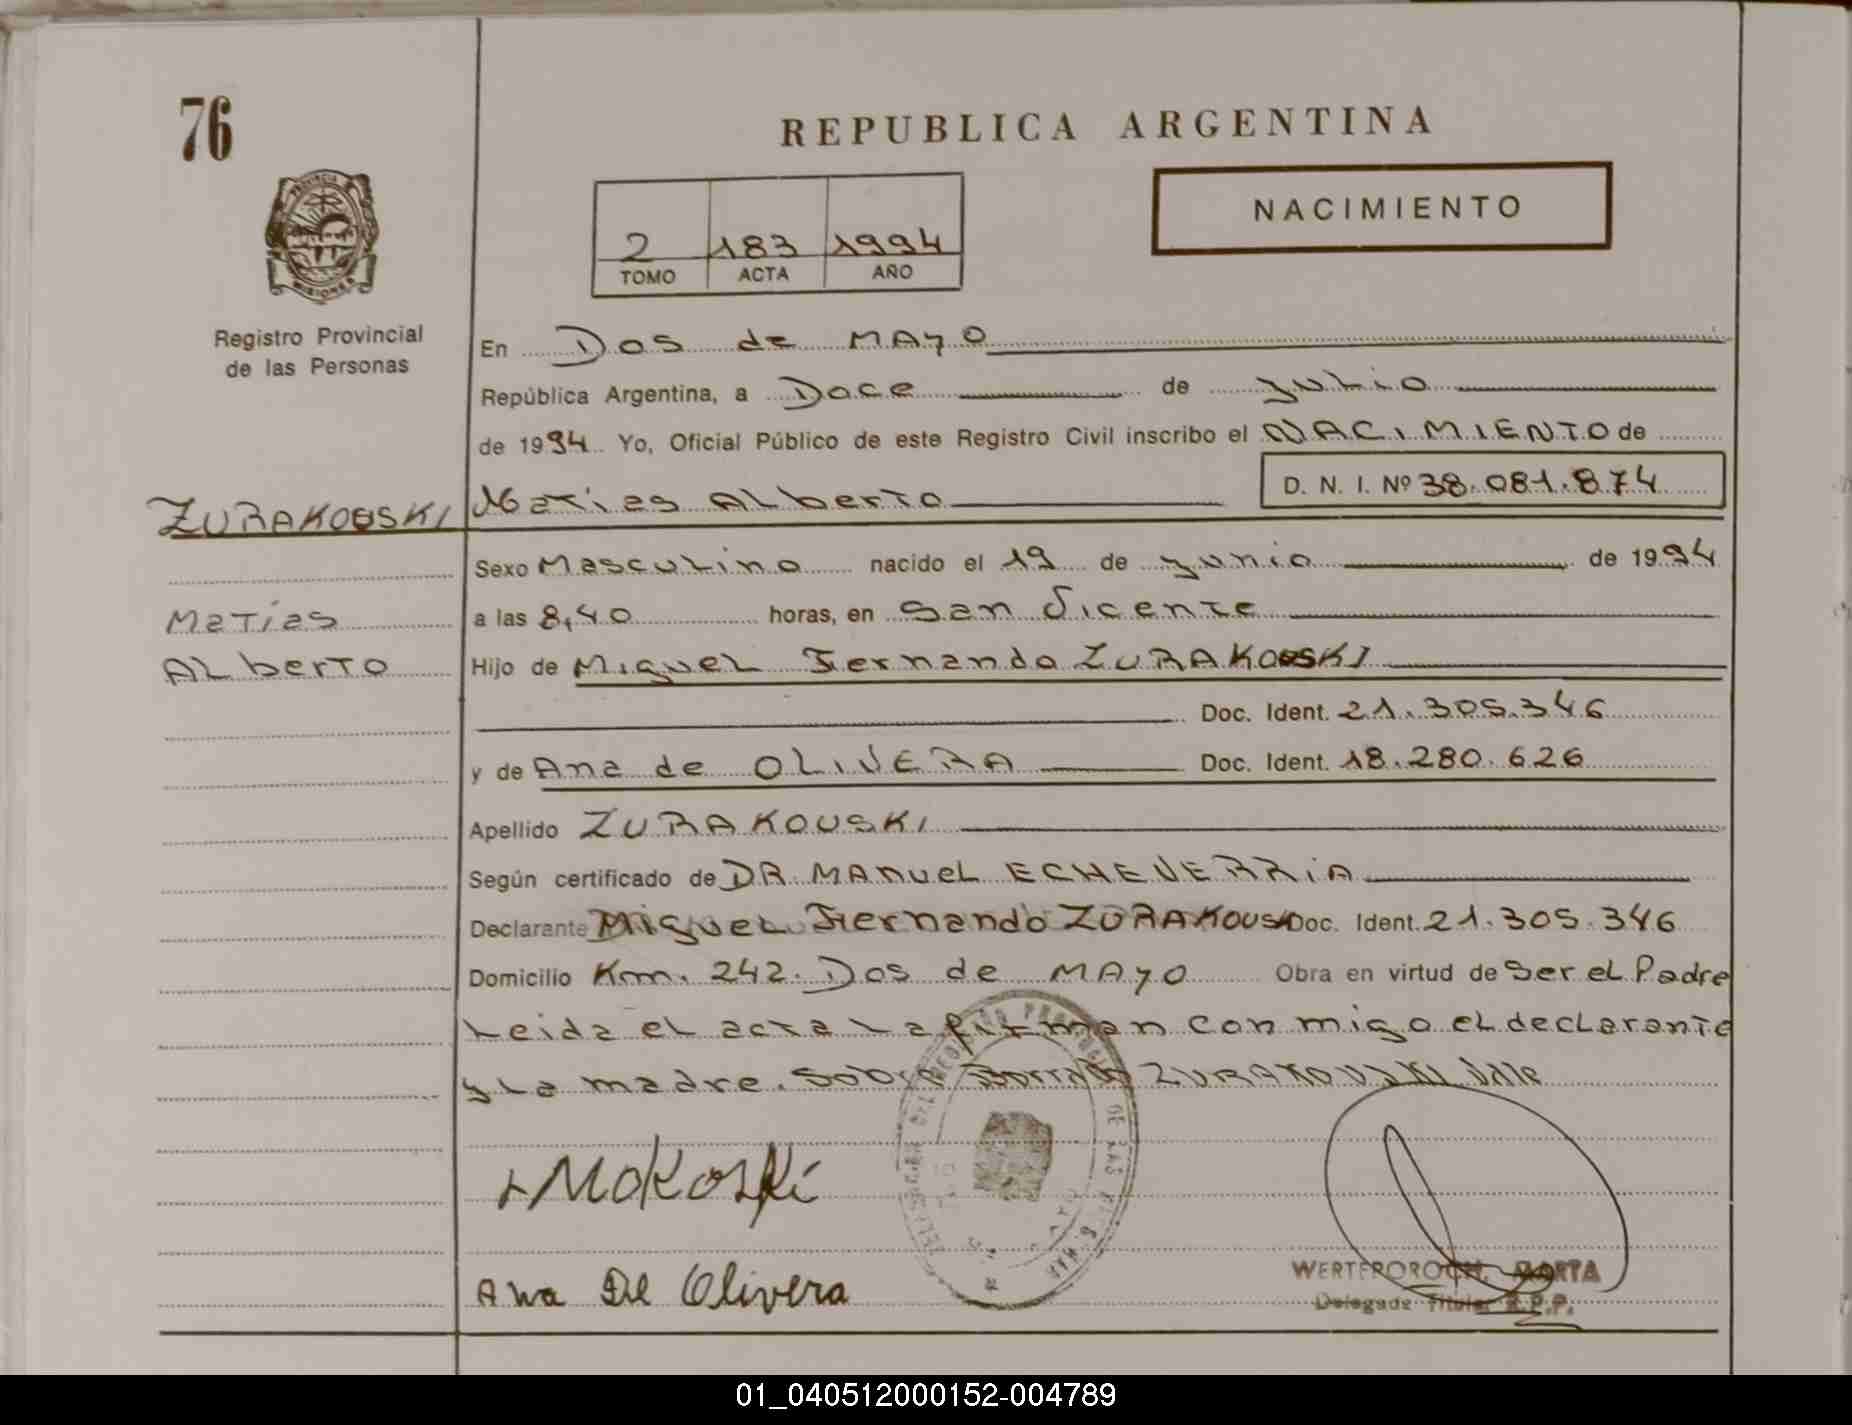 76
REPUBLICA ARGENTINA
NACIMIENTO
2 183 1994
TOMO ACTA AÑO
PROVINCIA
MISIONES
Registro Provincial
de las Personas
En Dos de MAyo
República Argentina, a Doce de Julio
de 1994 Yo, Oficial Público de este Registro Civil inscribo el NACIMIENTO de
D. N. I. Nº 38.081.874
ZURAKOUSKI Matias Alberto
Sexo Masculino nacido el 19 de junio de 1994
Matías
a las 8,40 horas, en San Vicente
Alberto
Hijo de Miguel Fernando ZURAKOUSKI
Doc. Ident. 21.305.346
y de Ana de OLIVERA Doc. Ident. 18.280.626
Apellido ZURAKOUSKI
Según certificado de DR. MANUEL ECHEVERRIA
Declarante Miguel Fernando ZURAKOUSKI Doc. Ident. 21.305.346
Domicilio Km. 242. Dos de MAyo Obra en virtud de Ser el Padre
Leida el acta la firman con migo el declarante
y la madre. Sobre Borrado ZURAKOUSKI Vale
Ana De Olivera
Delegada Titular R.P.P.
01_040512000152-004789